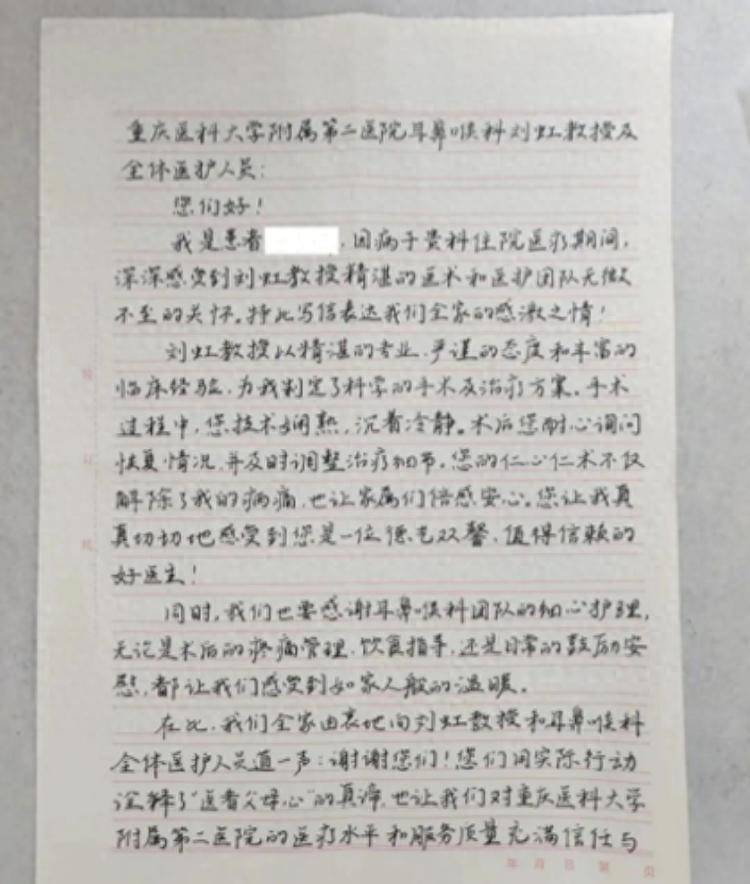 重庆医科大学附属第二医院耳鼻喉科刘虹教授及
全体医护人员:
您们好!
我是患者，因病于贵科住院医疗期间，
深深感受到刘虹教授精湛的医术和医护团队无微
不至的关怀。特此写信表达我们全家的感激之情!
刘虹教授以精湛的专业、严谨的态度和丰富的
临床经验，为我制定了科学的手术及治疗方案。手术
过程中，您技术娴熟，沉着冷静。术后您耐心询问
恢复情况，并及时调整治疗细节。您的仁心仁术不仅
解除了我的病痛，也让家属们倍感安心。您让我真
真切切地感受到您是一位德艺双馨，值得信赖的
好医生!
同时，我们也要感谢耳鼻喉科团队的细心护理，
无论是术后的疼痛管理、饮食指导，还是日常的鼓励安
慰，都让我们感受到如家人般的温暖。
在此，我们全家由衷地向刘虹教授和耳鼻喉科
全体医护人员道一声:谢谢您们!您们用实际行动
诠释了"医者父母心"的真谛，也让我们对重庆医科大学
附属第二医院的医疗水平和服务质量充满信任与
年 月 日 第 页